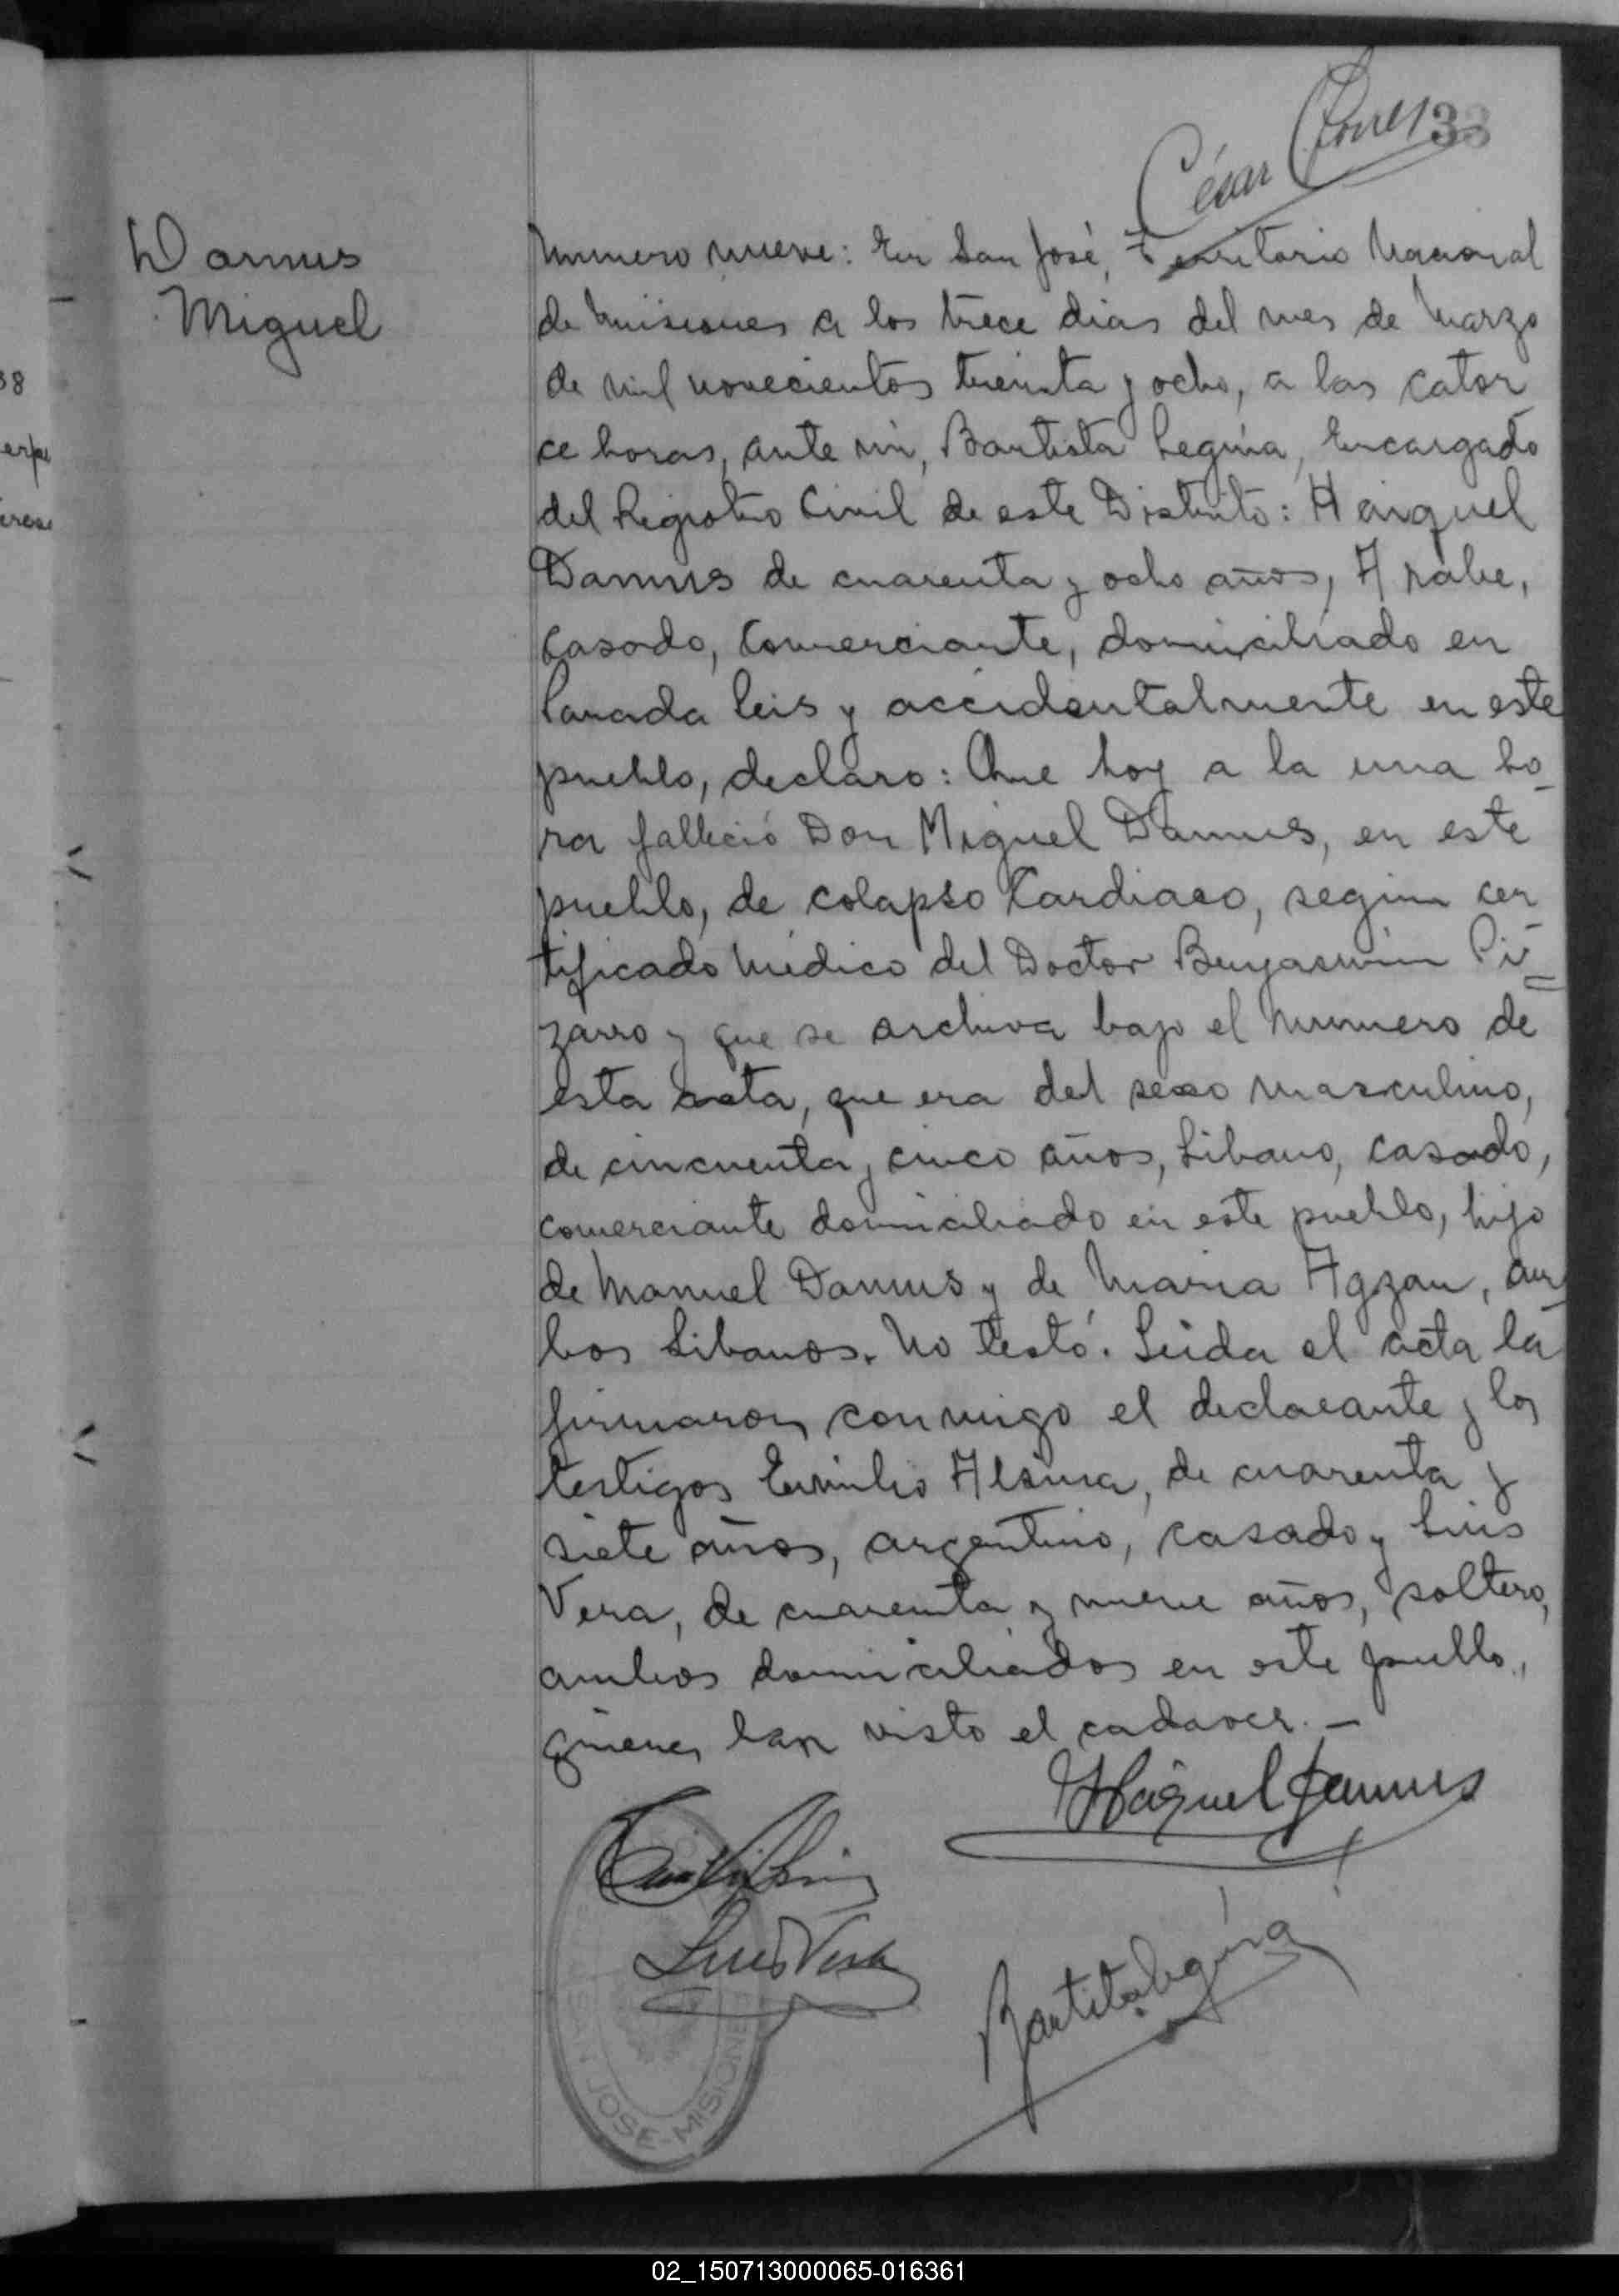 César
33
Damus
Miguel
Numero nueve: En San José, Territorio Nacional
de Misiones a los trece dias del mes de Marzo
de mil novecientos treinta y ocho, a las cator
ce horas, ante mi, Bautista Leguia, Encargado
del Registro Civil de este Distrito: Haiquel
Damus de cuarenta y ocho años, Arabe,
casado, comerciante, domiciliado en
Parada Leis y accidentalmente en este
pueblo, declaro: Que hoy a la una ho-
ra falleció Don Miguel Damus, en este
pueblo, de colapso Cardiaco, según cer
tificado Médico del Doctor Benjasmin Pi=
zarro y que se archiva bajo el numero de
esta acta, que era del sexo masculino,
de cincuenta y cinco años, Libano, casado,
comerciante domiciliado en este pueblo, hijo
de Manuel Damus y de Maria Agzan, am
bos Libanos. No testó. Leida el acta la
firmaron conmigo el declarante y los
testigos Emilio Alsina, de cuarenta y
siete años, argentino, casado y Luis
Vera, de cuarenta y nueve años, soltero,
ambos domiciliados en este pueblo,
quienes han visto el cadaver. —
Haiquel Damus
Luis Vera
SAN JOSE - MISIONES
02_150713000065-016361